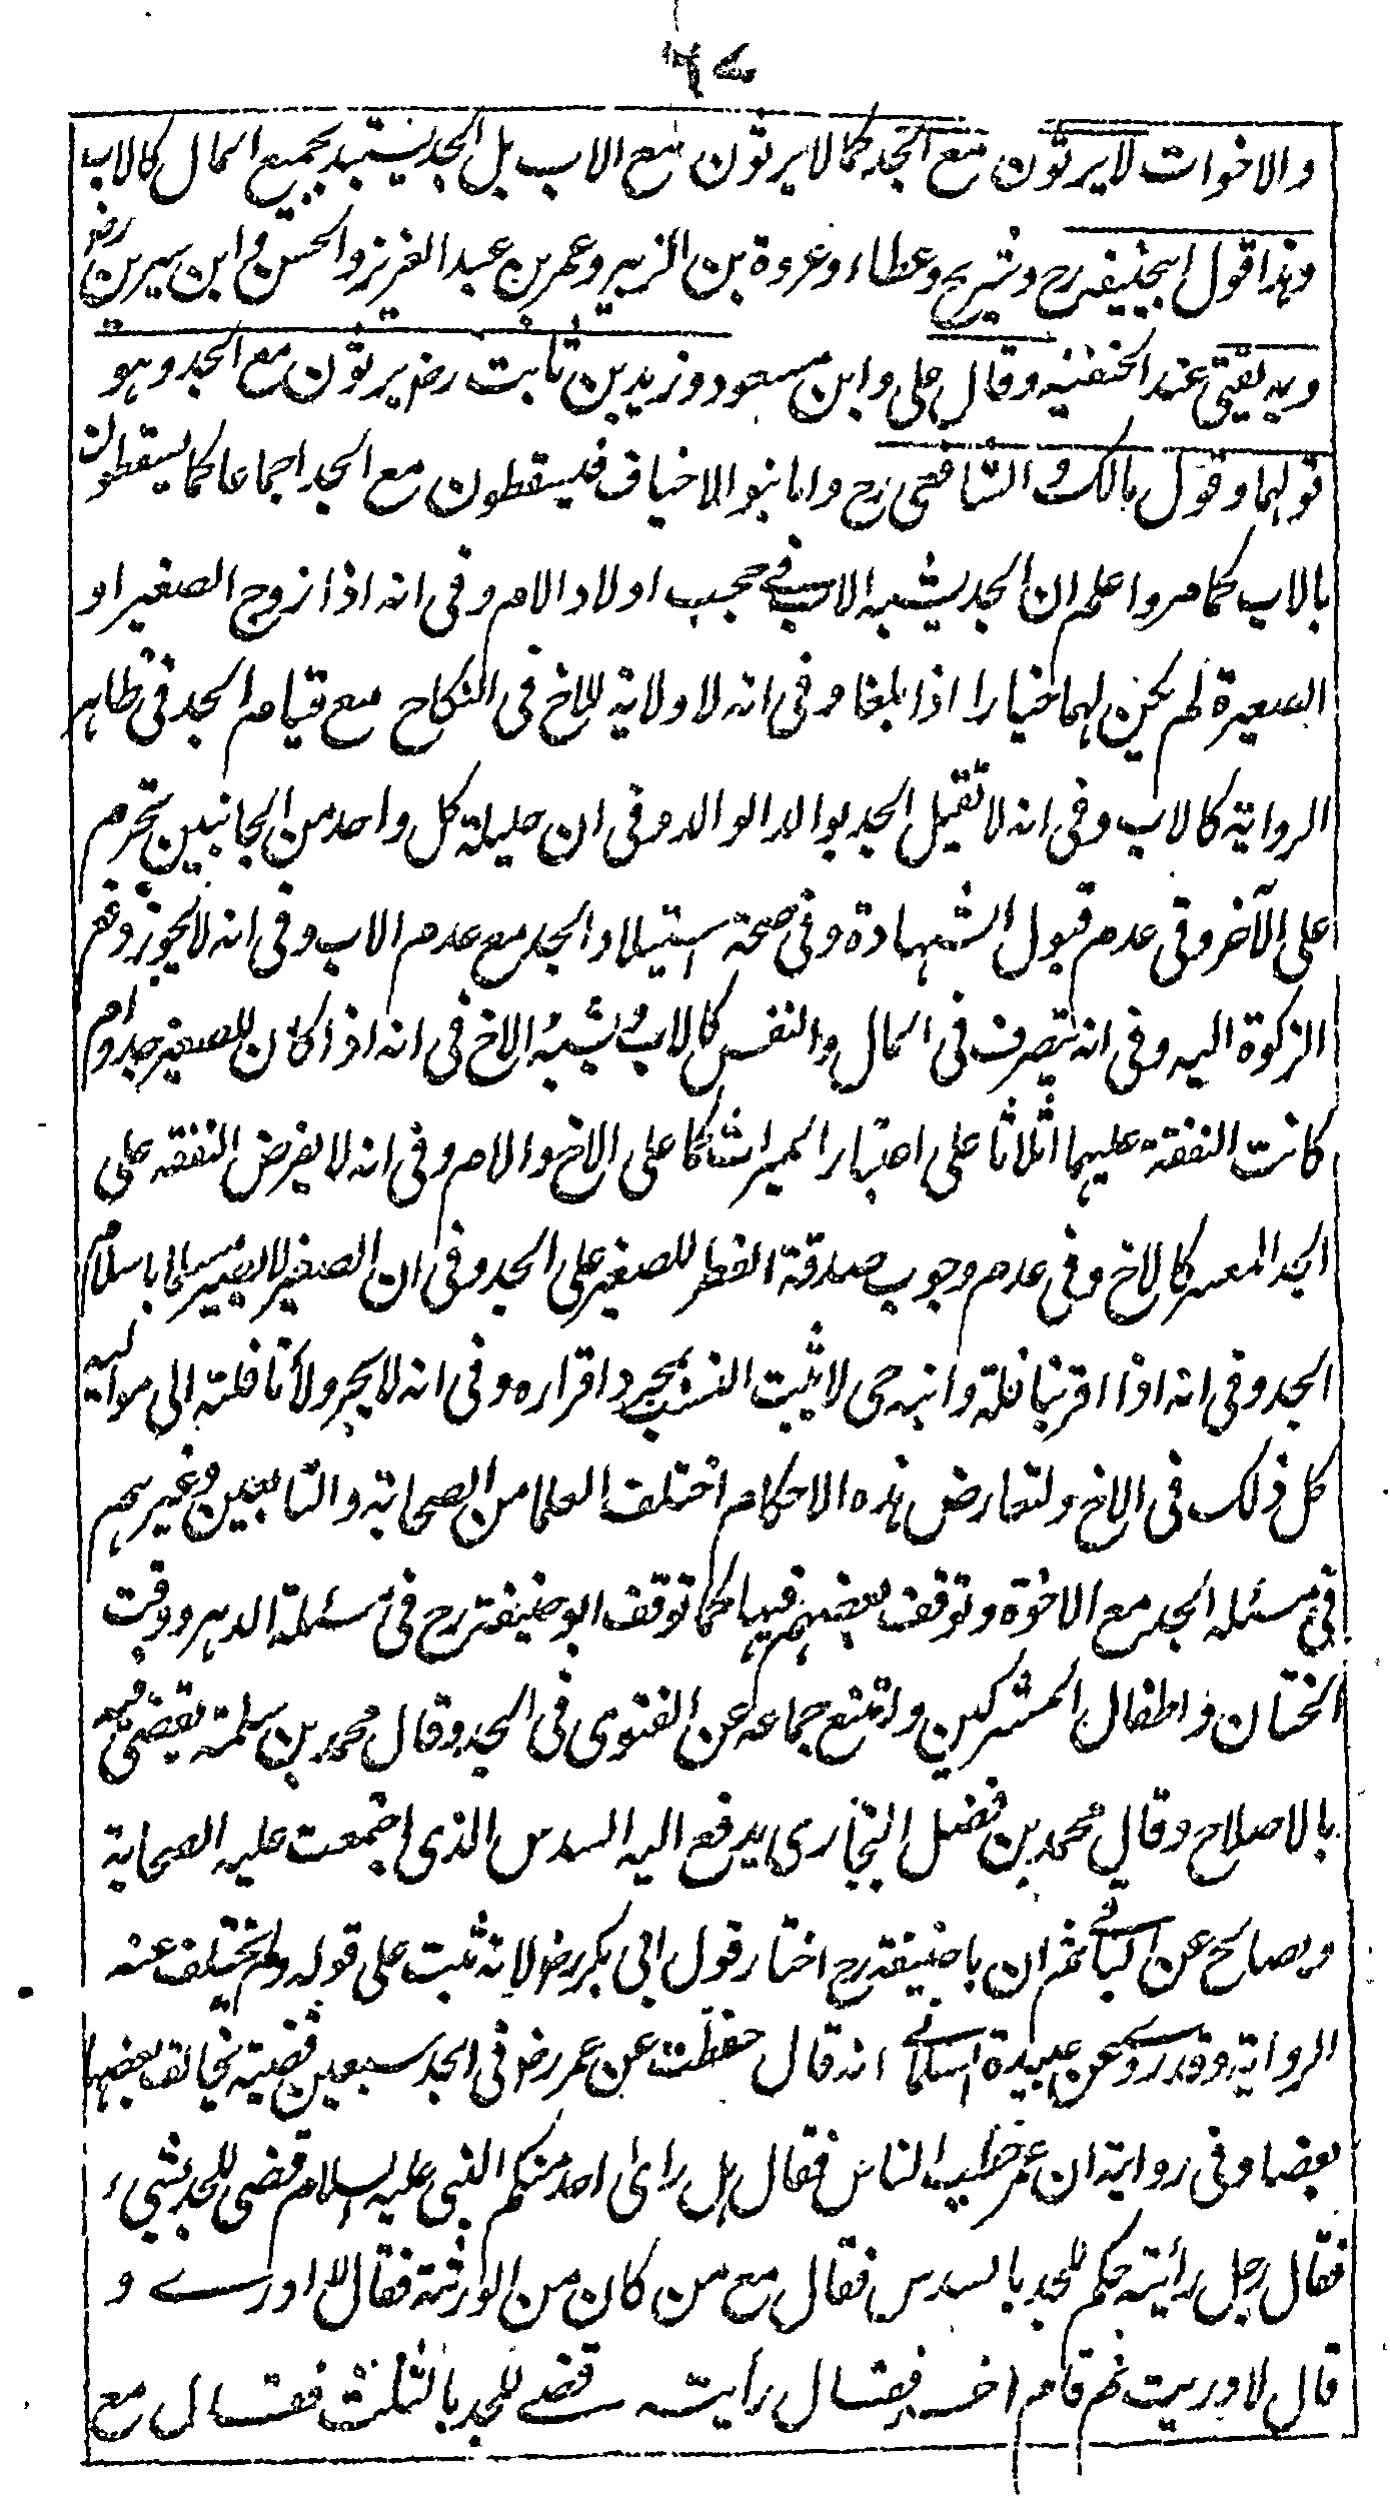 ٦٧
والاخوات لايرثون مع الجد كما لايرثون مع الاب بل الجد يستبد بجميع المال كالاب
وهذا قول ابيحنيفه رح وشريح وعطاء وعروة بن الزبير وعمر بن عبد العزيز والحسن وابن سيرين رض
وبه يفتى عند الحنفيه وقال على وابن مسعود وزيد بن ثابت رض يرثون مع الجد وهو
قولهما وقول مالك والشافعى رح واما بنو الاخياف فيسقطون مع الجد اجماعا كما يسقطون
بالاب كما مر واعلم ان الجد يشبه الاب فى حجب اولاد الام وفى انه اذا زوج الصغير او
الصغيرة لم يكن لهما خيارا اذا بلغا وفى انه لا ولاية للاخ فى النكاح مع قيام الجد فى ظاهر
الرواية كالاب وفى انه لا تقتل الجد بوالد الوالد وفى ان حليلة كل واحد من الجانبين تحرم
على الآخر وفى عدم قبول الشهادة وفى صحة استيلاد الجد مع عدم الاب وفى انه لا يجوز دفع
الزكوة اليه وفى انه يتصرف فى المال والنفس كالاب ويشبه الاخ فى انه اذا كان للصغير جد وام
كانت النفقة عليهما اثلاثا على اعتبار الميراث كما على الاخ والام وفى انه لا يفرض النفقه على
الجد المعسر كالاخ وفى عدم وجوب صدقة الفطر للصغير على الجد وفى ان الصغير لا يصير مسلما باسلام
الجد وفى انه اذا اقر بنافلة وابنه حى لا يثبت النسب بمجرد اقراره وفى انه لا يجر ولاء نافلته الى مواليه
كل ذلك فى الاخ ولتعارض هذه الاحكام اختلف العلما من الصحابة والتابعين وغيرهم
فى مسئله الجد مع الاخوة وتوقف بعضهم فيها كما توقف ابو حنيفة رح فى مسئلة الدهر ووقت
الختان واطفال المشركين وامتنع جماعه عن الفتوى فى الجد وقال محمد بن سلمة يقضى فيه
بالاصلاح وقال محمد بن فضل البخارى يدفع اليه السدس الذى اجتمعت عليه الصحابة
ويصالح عن الباقى ثم ان باحنيفة رح اختار قول ابى بكر رض لانه ثبت على قوله ولم يختلف عنه
الرواية وقد روى عن عبيدة السلمانى انه قال حفظت عن عمر رض فى الجد سبعين قضية يخالف بعضها
بعضا وفى رواية ان عمر خطب الناس فقال هل راى احد منكم النبى عليه السلام قضى للجد بشىء
فقال رجل رأيته حكم للجد بالسدس فقال مع من كان من الورثة فقال لا ادرى و
قال لا دريت ثم قام اخر فقال رأيته قضى للجد بالثلث فقال مع